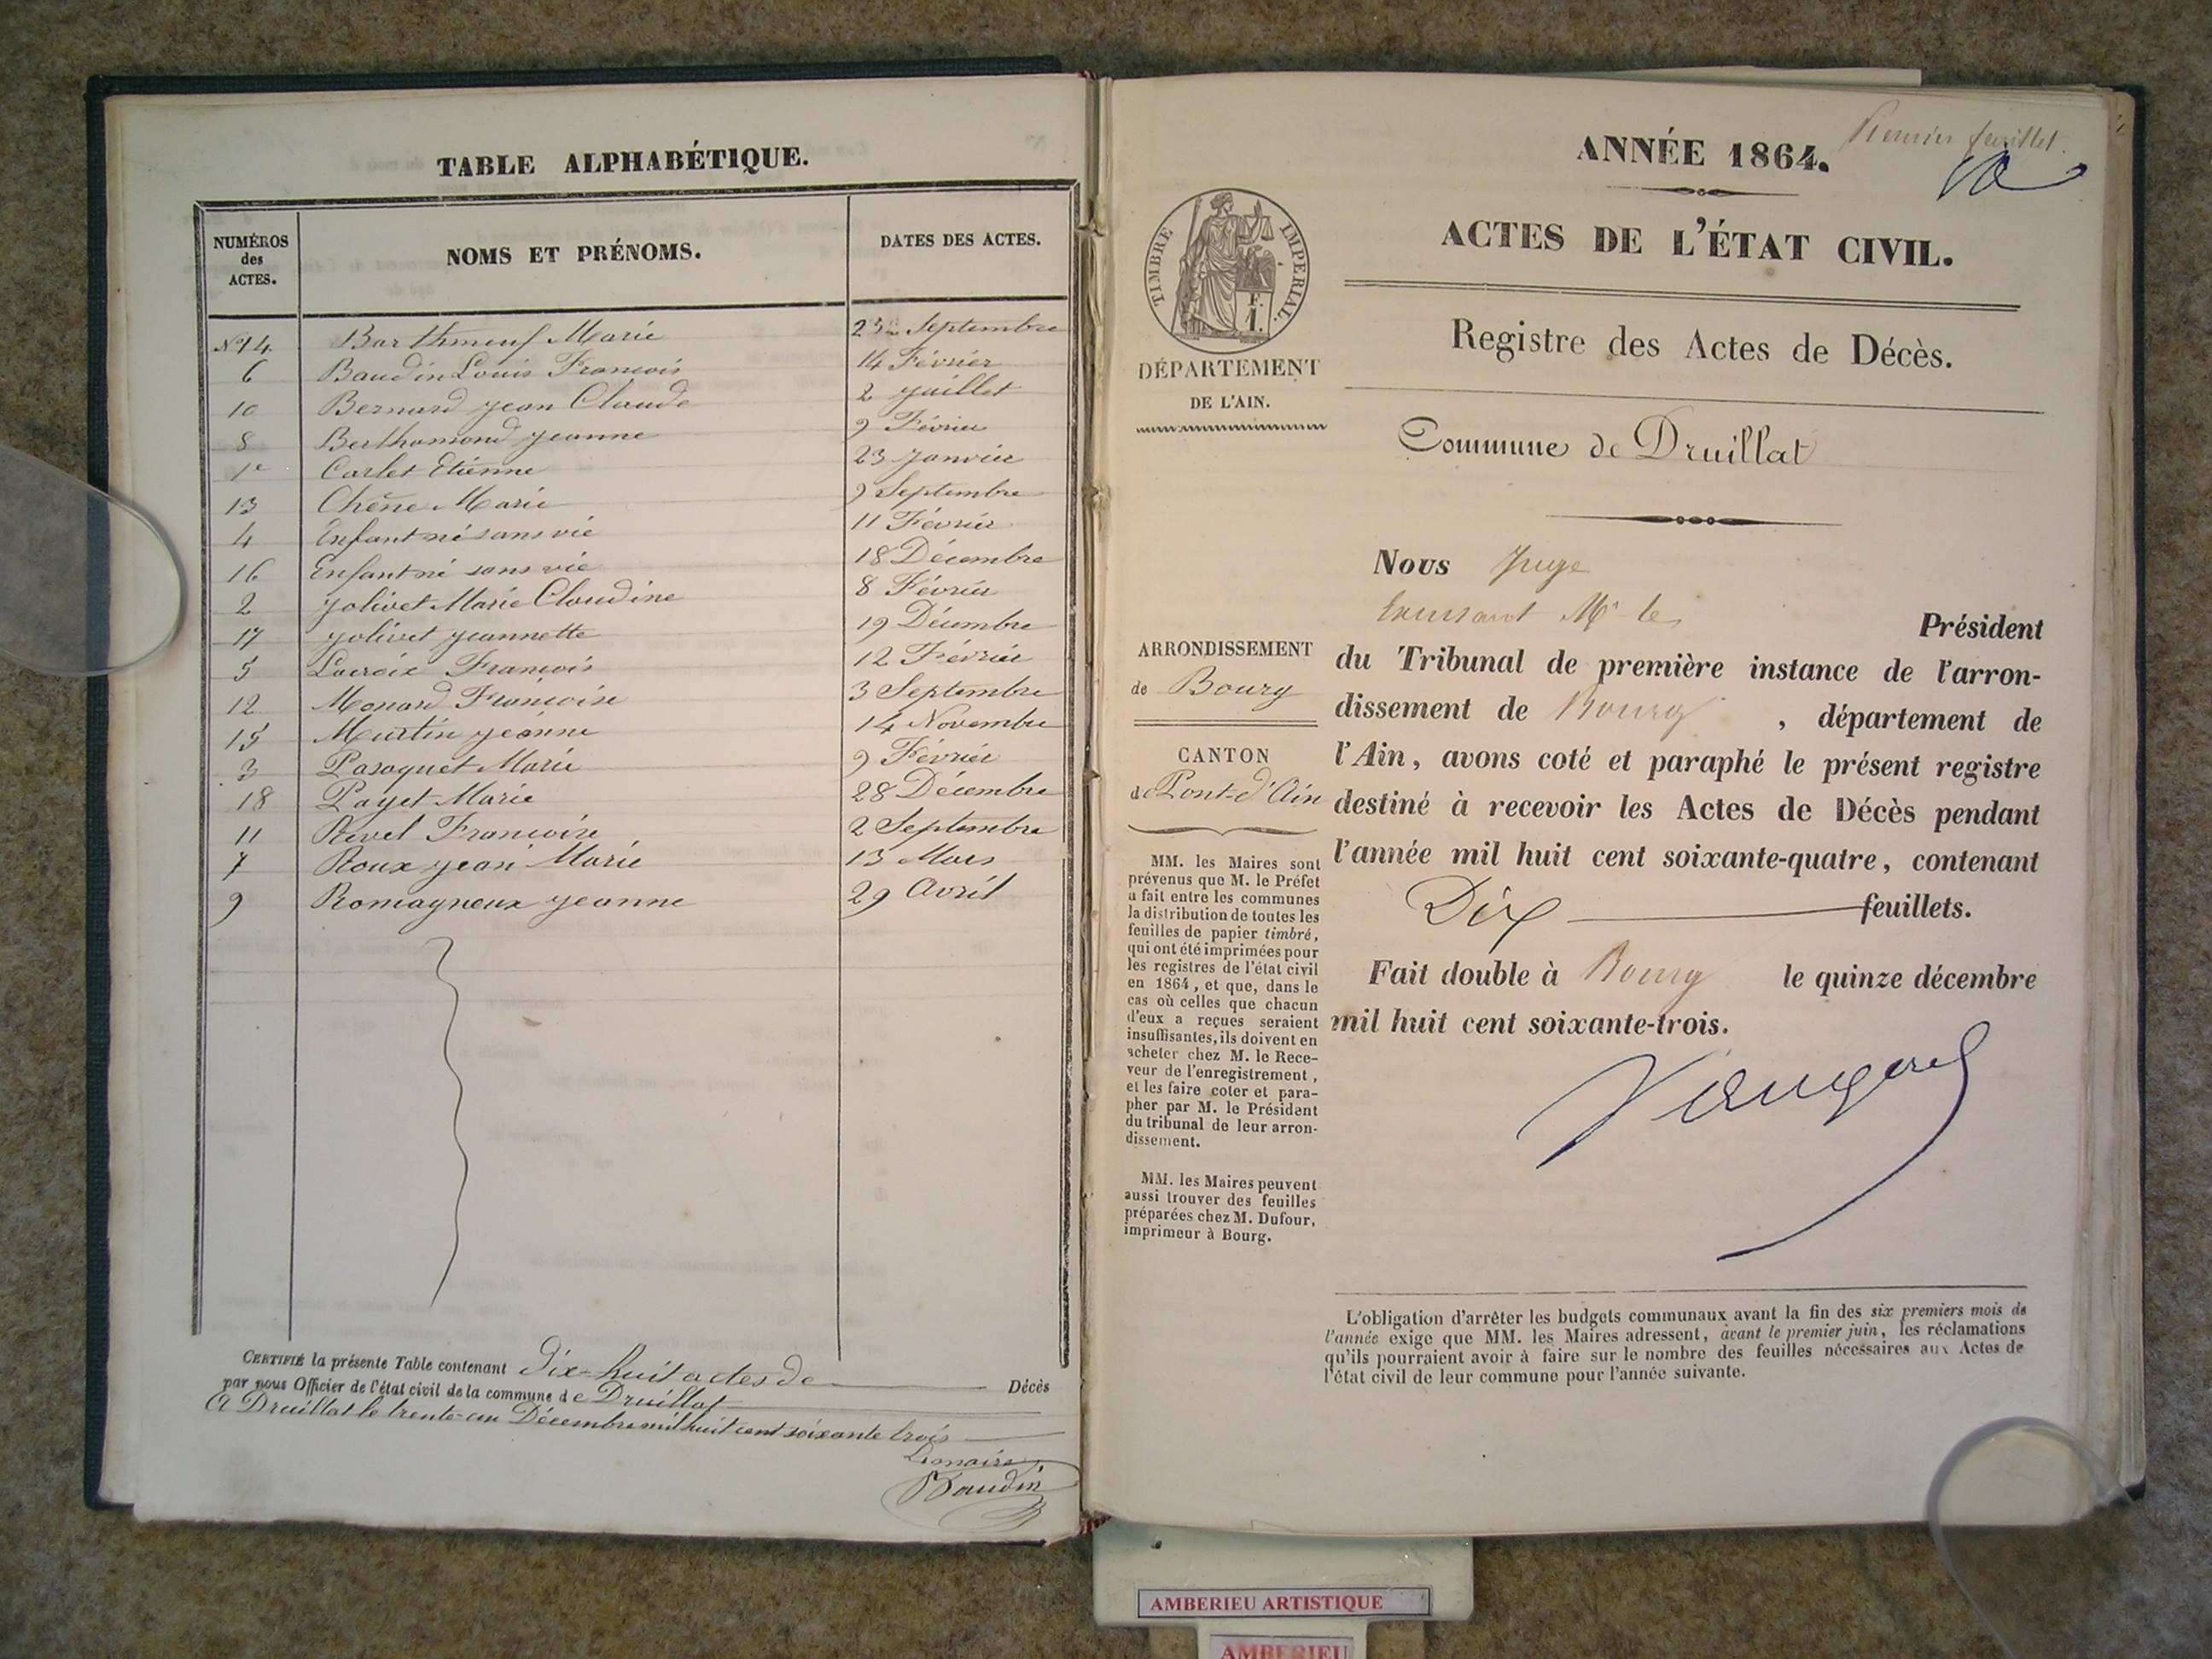 TABLE ALPHABÉTIQUE.
NUMÉROS des ACTES. NOMS ET PRÉNOMS. DATES DES ACTES.
N° 14 Marie Septembre
6 Baudin Louis François 14 Février
10 Bernard jean Claude 2 juillet
8 Berthomond jeanne 9 Février
1er Carlet Etienne 23 janvier
13 Chêne Marie 9 Septembre
4 Enfant né sans vie 11 Février
16 Enfant né sans vie 18 Décembre
2 jolivet Marie Claudine 8 Février
17 jolivet jeannette 19 Décembre
5 Lacroix François 12 Février
12 Monard Françoise 3 Septembre
15 Martin jeanne 14 Novembre
3 Pasoquet Marie 9 Février
18 Payet Marie 28 Décembre
11 Revel Françoise 2 Septembre
7 Roux jean Marie 13 Mars
9 Romagneux jeanne 29 Avril
CERTIFIÉ la présente Table contenant dix-huit actes de Décès
par nous Officier de l'état civil de la commune de Druillat
A Druillat le trente-un Décembre mil huit cent soixante trois
Le maire
Baudin
Premier feuillet
ANNÉE 1864.
ACTES DE L'ÉTAT CIVIL.
TIMBRE IMPERIAL.
F.
1.
Registre des Actes de Décès.
DÉPARTEMENT
DE L'AIN.
Commune de Druillat
Nous Juge
Mr le Président
du Tribunal de première instance de l'arron-
dissement de Bourg, département de
l'Ain, avons coté et paraphé le présent registre
destiné à recevoir les Actes de Décès pendant
l'année mil huit cent soixante-quatre, contenant
Dix feuillets.
Fait double à Bourg le quinze décembre
mil huit cent soixante-trois.
ARRONDISSEMENT
de Bourg
CANTON
de Pont-d'Ain
MM. les Maires sont
prévenus que M. le Préfet
a fait entre les communes
la distribution de toutes les
feuilles de papier timbré,
qui ont été imprimées pour
les registres de l'état civil
en 1864, et que, dans le
cas où celles que chacun
d'eux a reçues seraient
insuffisantes, ils doivent en
acheter chez M. le Rece-
veur de l'enregistrement,
et les faire coter et para-
pher par M. le Président
du tribunal de leur arron-
dissement.
MM. les Maires peuvent
aussi trouver des feuilles
préparées chez M. Dufour,
imprimeur à Bourg.
L'obligation d'arrêter les budgets communaux avant la fin des six premiers mois de
l'année exige que MM. les Maires adressent, avant le premier juin, les réclamations
qu'ils pourraient avoir à faire sur le nombre des feuilles nécessaires aux Actes de
l'état civil de leur commune pour l'année suivante.
AMBERIEU ARTISTIQUE
AMBERIEU